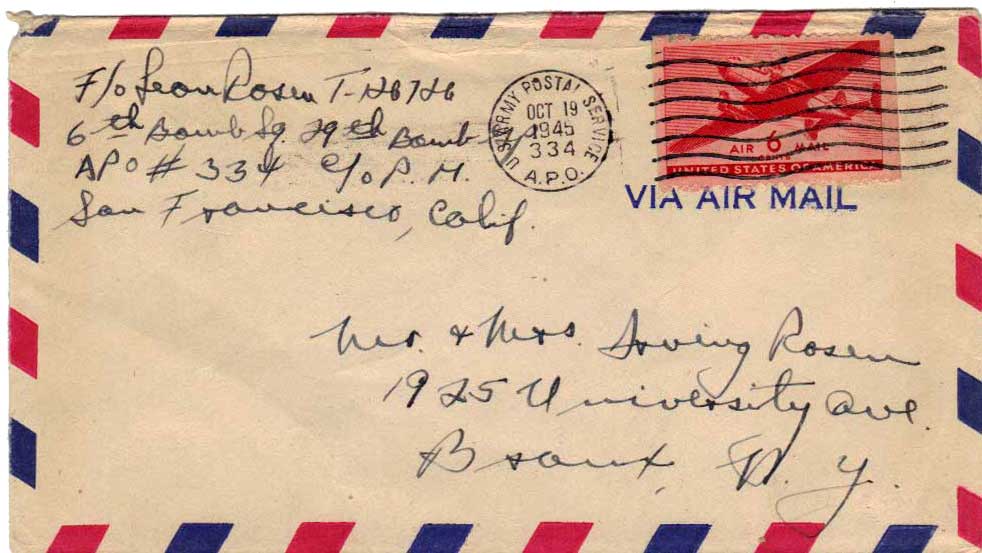 F/o Leon Rosen T-126726
6th Bomb Sq. 29th Bomb
APO # 334 c/o P.M.
San Francisco, Calif.
U.S. ARMY POSTAL SERVICE
OCT 19
1945
334
A.P.O.
AIR 6 MAIL
CENTS
UNITED STATES OF AMERICA
VIA AIR MAIL
Mr. & Mrs. Irving Rosen
1925 University Ave.
Bronx, N.Y.